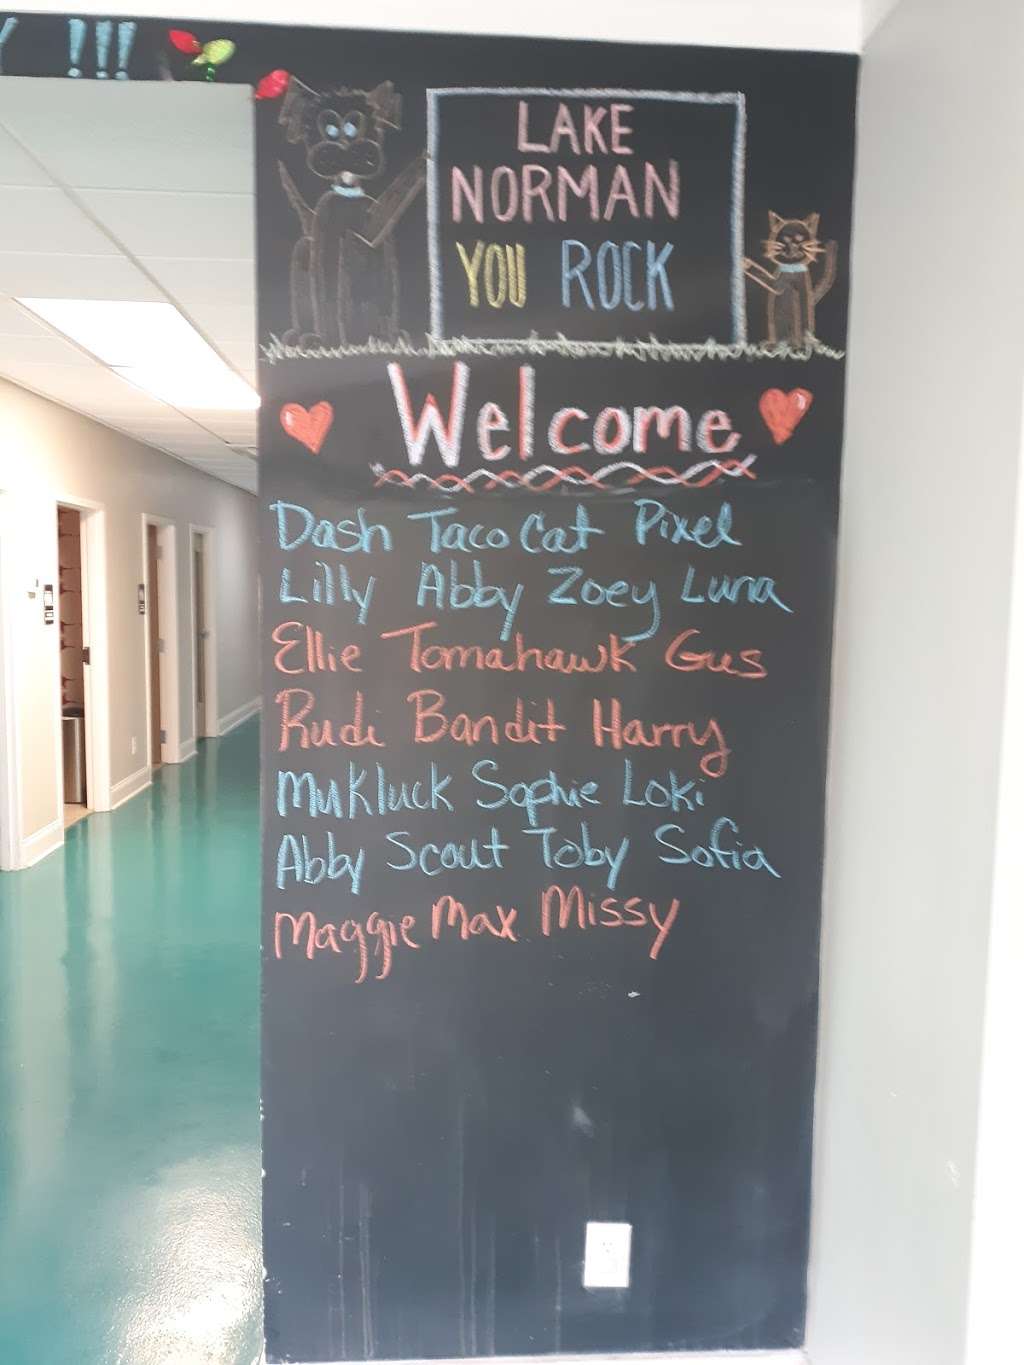 Y !!!
LAKE
NORMAN
YOU ROCK
Welcome
Dash Taco Cat Pixel
Lilly Abby Zoey Luna
Ellie Tomahawk Gus
Rudi Bandit Harry
Mukluck Sophie Loki
Abby Scout Toby Sofia
Maggie Max Missy